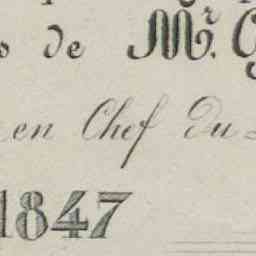 de Mr.
en Chef du
1847